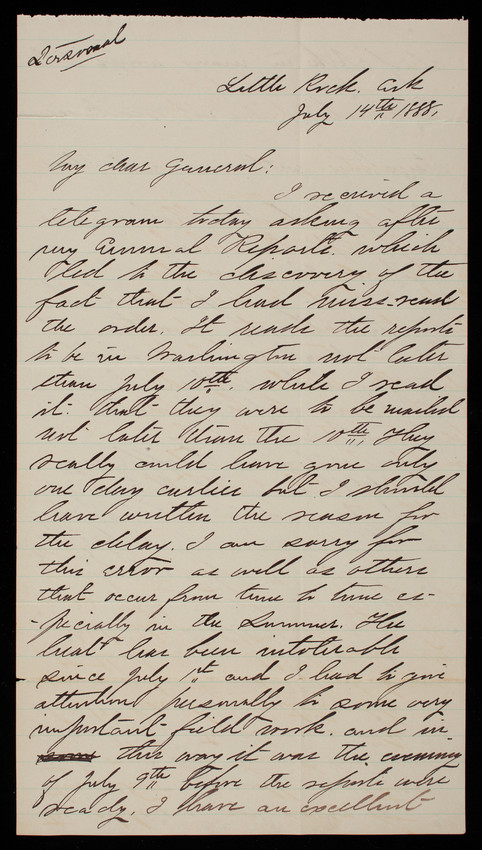 Personal
Little Rock. Ark
July 14th 1888.
My dear General:
I received a
telegram today asking after
my Annual Reports. which
led to the discovery of the
fact that I had miss-read
the order. It reads the reports
to be in Washington not later
than July 10th, while I read
it: that they were to be mailed
not later than the 10th. They
really could have gone only
one day earlier but I should
have written the reason for
the delay. I am sorry for
this error as well as others
that occur from time to time es-
-pecially in the summer. The
heat has been intolerable
since July 1st and I had to give
attention personally to some very
important field work. and in
this way it was the evening
of July 9th before the reports were
ready. I have an excellent